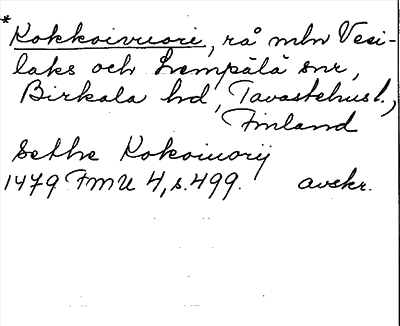 *
Kokkoivuori, rå mln Vesi-
laks och Lempälä snr,
Birkala hd, Tavastehus l.,
Finland
Sethe Kokoiuorij
1479 FMU 4, s. 499. avskr.